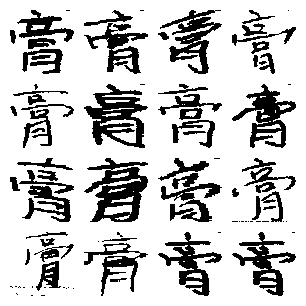 膏膏膏膏
膏膏膏膏
膏膏膏膏
膏膏膏膏